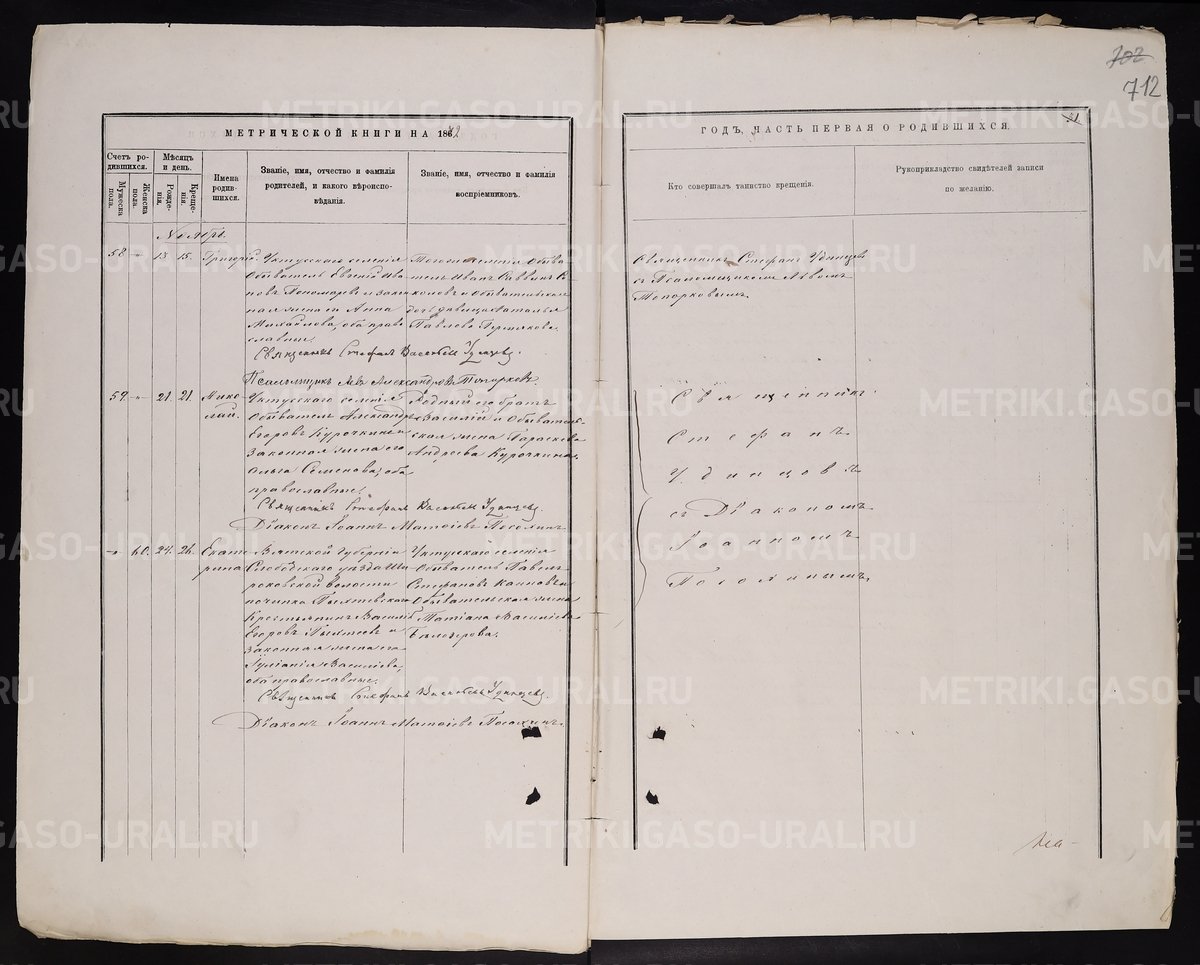 702
712
МЕТРИЧЕСКОЙ КНИГИ НА 1872
Счетъ родившихся.
Мужеска пола.
Женска пола.
Мѣсяцъ и день.
Рожденія.
Крещенія.
Имена родившихся.
Званіе, имя, отчество и фамилія родителей, и какого вѣроисповѣданія.
Званіе, имя, отчество и фамилія воспріемниковъ.
ГОДЪ, ЧАСТЬ ПЕРВАЯ О РОДИВШИХСЯ.
Кто совершалъ таинство крещенія.
Рукоприкладство свидѣтелей записи по желанію.
Ноябрь.
58 " 13. 15. Григорій.
Уктусскаго селенія
Обыватель Евгеній Ива
новъ Пономаревъ и закон
ная жена его Анна
Михайлова, оба право
славные.
Того же селенія Обыва
тель Иванъ Саввинъ
и Обывательская
дочь дѣвица Наталья
Павлова
Священникъ Стефанъ Удинцевъ
съ Псаломщикомъ Львомъ
Топорковымъ.
Священникъ Стефанъ Васильевъ Удинцевъ.
Псаломщикъ Левъ Александровъ Топорковъ.
59. " 21. 21. Нико
лай.
Уктусскаго селенія
Обыватель Александръ
Егоровъ Курочкинъ и
законная жена его
Ольга Семенова, оба
православные.
Родный его братъ
Василій и Обыватель
ская жена Параскева
Андреева Курочкина.
Священникъ
Стефанъ
Удинцовъ
съ Діакономъ
Іоанномъ
Посохинымъ.
Священникъ Стефанъ Васильевъ Удинцевъ.
Діаконъ Іоаннъ Матѳіевъ Посохинъ.
" 60. 24. 26. Екате
рина
Вятской губерніи
Слободскаго уѣзда
волости
починка
Крестьянинъ Василій
Егоровъ и
законная жена его
Іуліанія Васильева,
оба православные.
Уктусскаго селенія
Обыватель Павелъ
Стефановъ и
Обывательская жена
Татіана Васильева
Бѣлозерова.
Священникъ Стефанъ Васильевъ Удинцевъ.
Діаконъ Іоаннъ Матѳіевъ Посохинъ.
METRIKI.GASO-URAL.RU